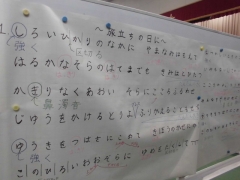 ～旅立ちの日に～
1.しろいひかりのなかに やまなみはもえて
強く
はるかなそらのはてまでも きみはとびたつ
かぎりなくあおい そらにこころふるわせ
鼻濁音
じゆうをかけるとりよ ふりかえることもせず
ゆうきをつばさにこめて きぼうのかぜにのり
強く
このひろいおおぞらに ゆめをたくして